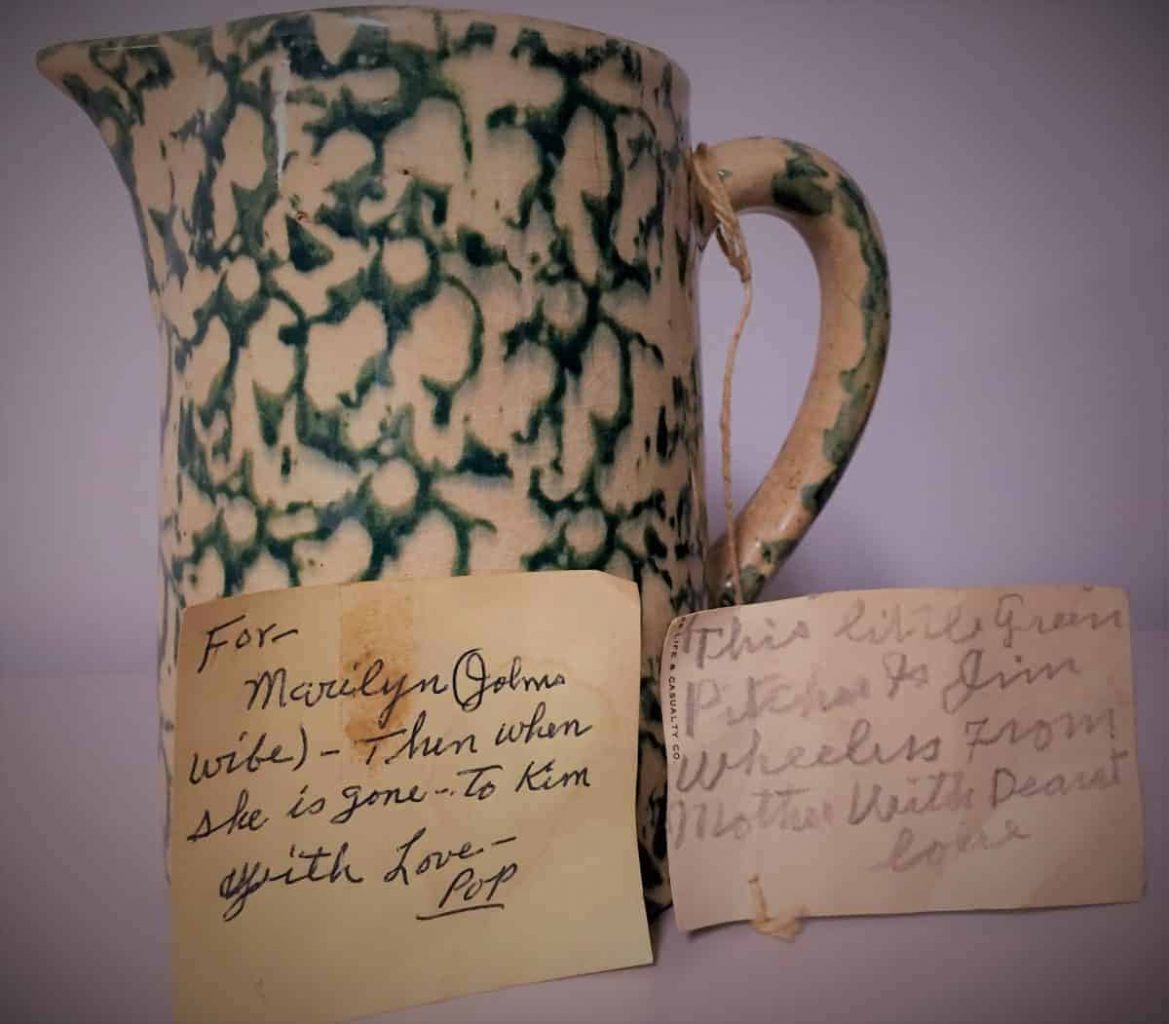 For-
Marilyn (Johns
wife) - Then when
she is gone - To Kim
With Love -
POP
LIFE & CASUALTY CO.
This little Green
Pitcher Is Jim
Wheeless From
Mother With Dearest
love